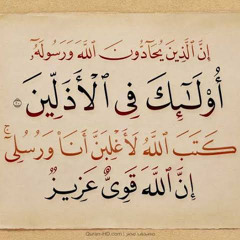 إِنَّ الَّذِينَ يُحَادُّونَ اللَّهَ وَرَسُولَهُ
أُولَٰئِكَ فِي الْأَذَلِّينَ
كَتَبَ اللَّهُ لَأَغْلِبَنَّ أَنَا وَرُسُلِي ۚ
إِنَّ اللَّهَ قَوِيٌّ عَزِيزٌ